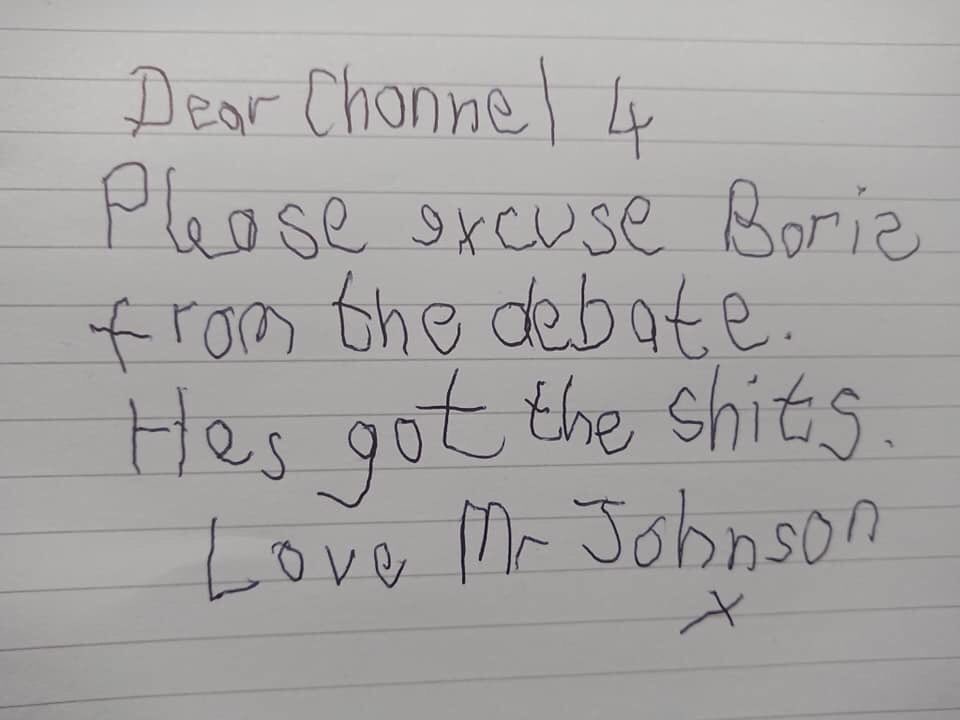 Dear Channel 4
Please excuse Boris
from the debate.
Hes got the shits.
Love Mr Johnson
x